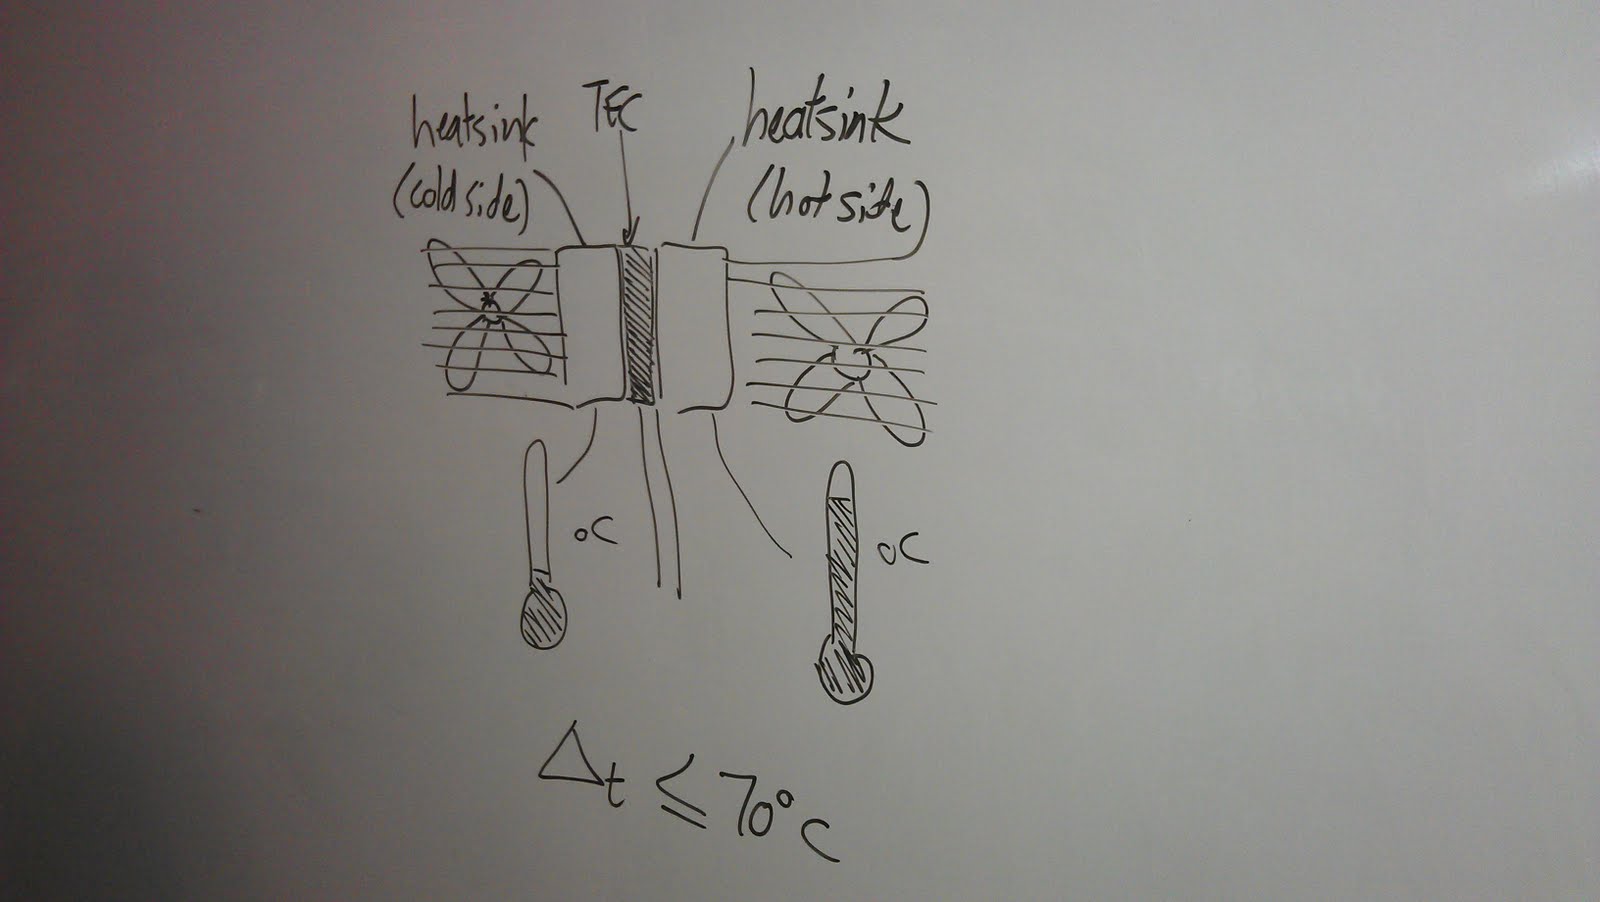 heatsink
(cold side)
TEC
heatsink
(hot side)
°C
°C
Δt ≤ 70°C